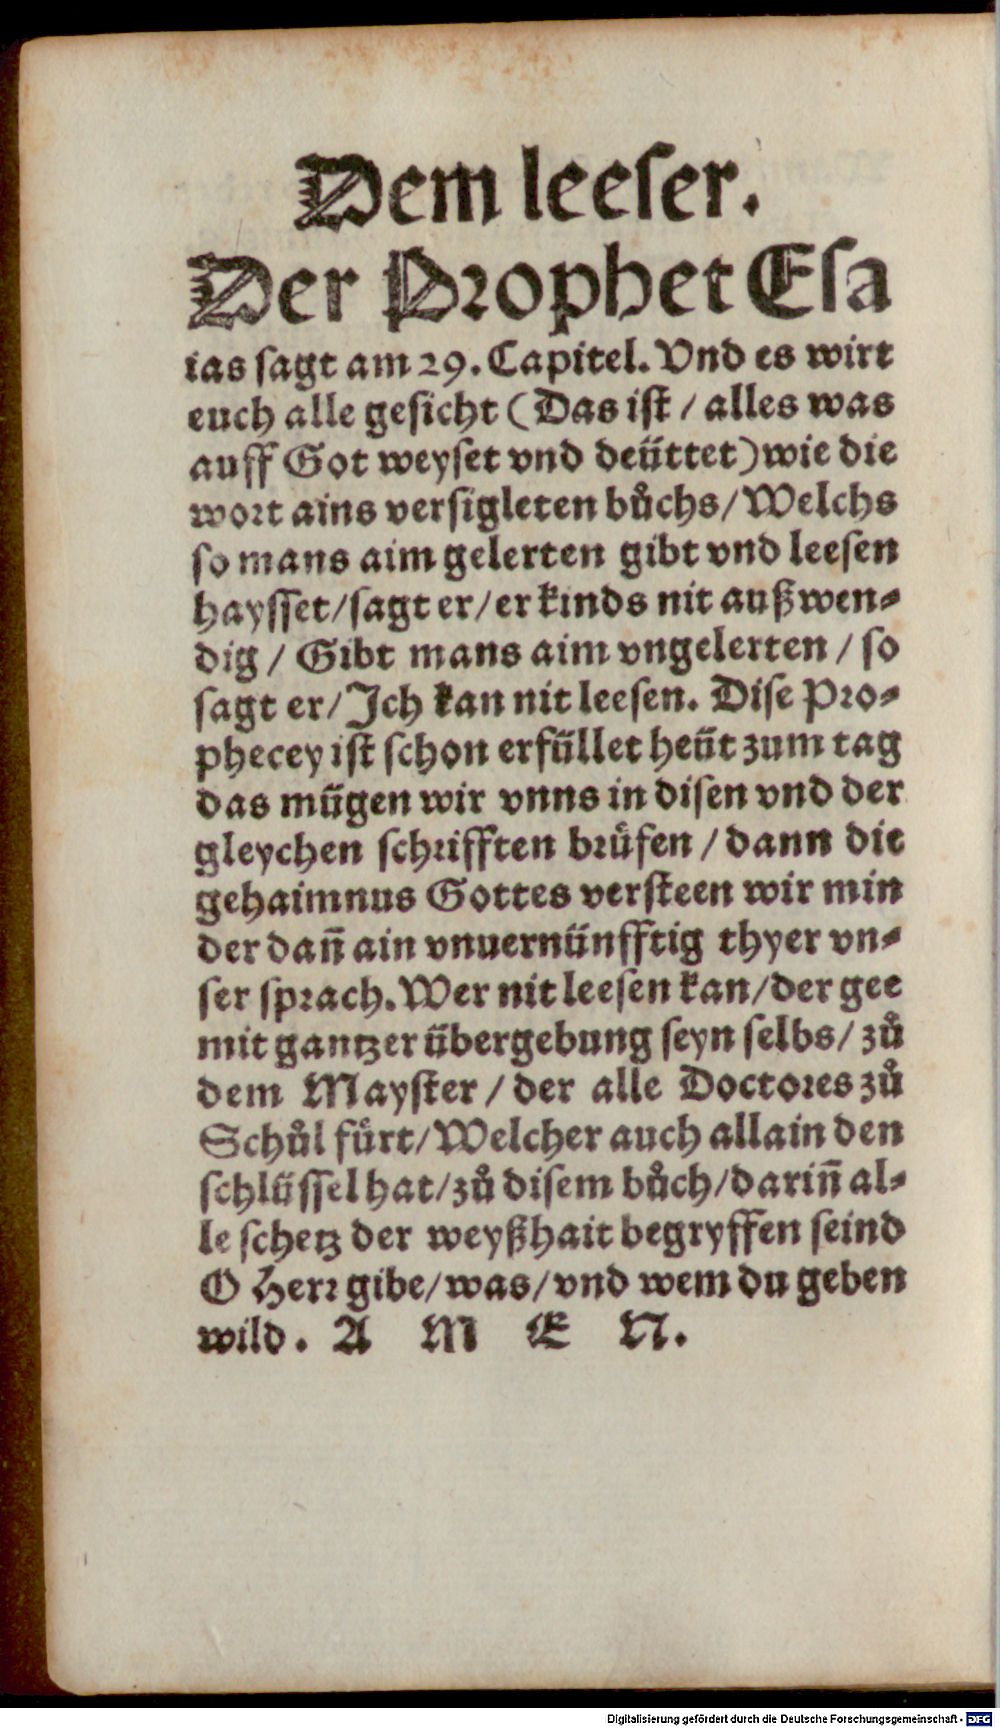 Dem leeser.
Der Prophet Esa
ias sagt am 29. Capitel. Vnd es wirt
euch alle gesicht (Das ist / alles was
auff Got weyset vnd deüttet) wie die
wort ains versigleten bůchs / Welchs
so mans aim gelerten gibt vnd leesen
haysset / sagt er / er kinds nit außwen-
dig / Gibt mans aim vngelerten / so
sagt er / Ich kan nit leesen. Dise Pro-
phecey ist schon erfüllet heüt zum tag
das mügen wir vnns in disen vnd der
gleychen schrifften brüfen / dann die
gehaimnus Gottes versteen wir min
der dañ ain vnuernünfftig thyer vn-
ser sprach. Wer nit leesen kan / der gee
mit gantzer übergebung seyn selbs / zů
dem Mayster / der alle Doctores zů
Schůl fürt / Welcher auch allain den
schlüssel hat / zů disem bůch / dariñ al-
le schetz der weyßhait begryffen seind
O Herr gibe / was / vnd wem du geben
wild. A M E N.
Digitalisierung gefördert durch die Deutsche Forschungsgemeinschaft - DFG